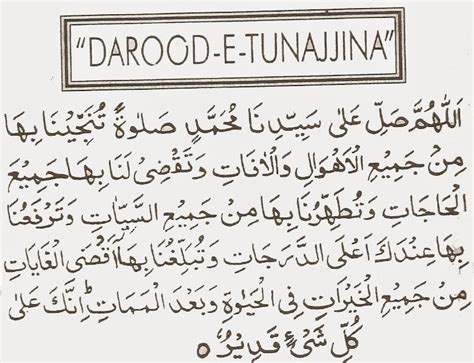 "DAROOD-E-TUNAJJINA"
اَللّٰهُمَّ صَلِّ عَلٰى سَيِّدِنَا مُحَمَّدٍ صَلٰوةً تُنَجِّيْنَا بِهَا
مِنْ جَمِيْعِ الْاَهْوَالِ وَالْاٰفَاتِ وَتَقْضِىْ لَنَا بِهَا جَمِيْعَ
الْحَاجَاتِ وَتُطَهِّرُنَا بِهَا مِنْ جَمِيْعِ السَّيِّاٰتِ وَتَرْفَعُنَا
بِهَا عِنْدَكَ اَعْلَى الدَّرَجَاتِ وَتُبَلِّغُنَا بِهَا اَقْصَى الْغَايَاتِ
مِنْ جَمِيْعِ الْخَيْرَاتِ فِى الْحَيٰوةِ وَبَعْدَ الْمَمَاتِ ؕ اِنَّكَ عَلٰى
كُلِّ شَىْءٍ قَدِيْرٌ ۝